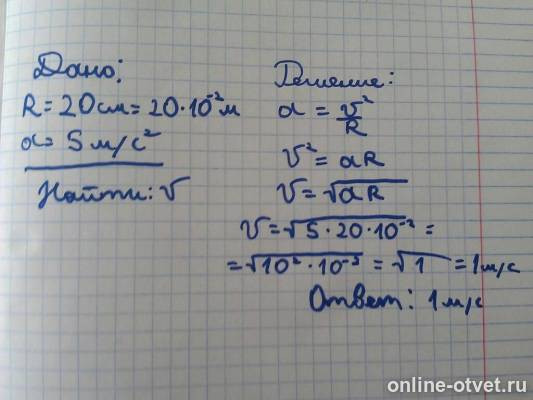 Дано:
R = 20см = 20·10⁻² м
a = 5 м/с²
Найти: v
Решение:
a = v²/R
v² = aR
v = √aR
v = √5·20·10⁻² =
= √10²·10⁻² = √1 = 1м/с
Ответ: 1 м/с
online-otvet.ru